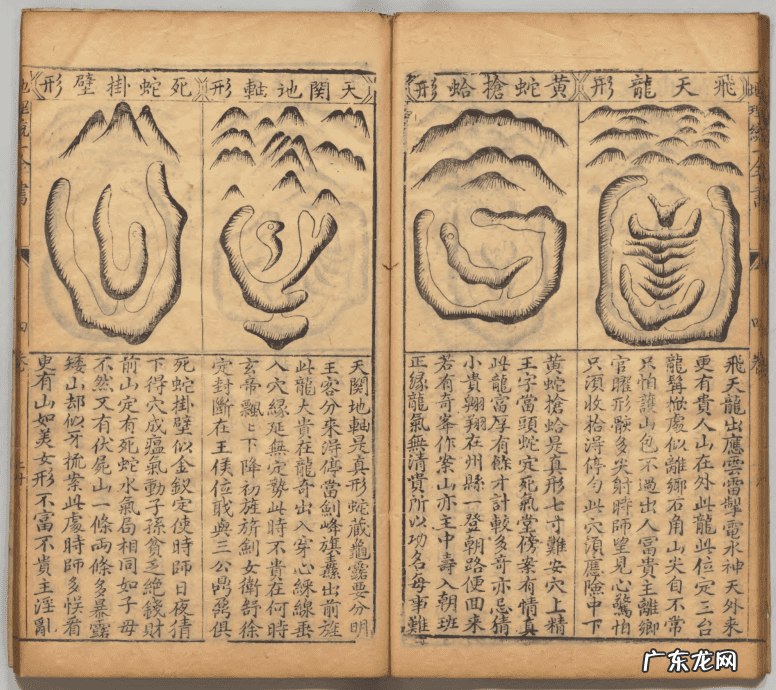 地理統一全書
四
卷
飛天龍形
飛天龍出應雲雷掣電水神天外來
更有貴人山在外此龍此位定三台
龍髯橛處似離鄉石角山尖自不常
只怕護山包不過出人冨貴主離鄉
官曜形骸多尖射時師望見心驚怕
只湏收拾淂停勻此穴湏應險中下
黃蛇搶蛤形
黃蛇搶蛤是真形七寸難安穴上精
王字當頭蛇定死氣堂傍案有情真
此龍富厚有餘才計較多奇亦忌猜
小貴翱翔在州縣一登朝路便回來
若有奇峯作案山亦主中壽入朝班
正緣龍氣無清貴所以功名每事難
天関地軸形
天関地軸是真形蛇藏龜露要分明
王客分來淂停當劍峰旗纛出前旌
此龍大貴在龍奇出入穿心綵線垂
入穴緣延無定勢此時不貴在何時
玄帝飄〻下降初旌旂劍女衛舒徐
定封斷在王侯位戢與三公鼎鼐俱
死蛇掛壁形
死蛇掛壁似金釵定使時師日夜猜
下得穴成瘟氣動子孫貧乏絕錢財
前山定有死蛇水氣局相同如子母
不然又有伏屍山一條兩條多暴露
矮山却似牙梳案此處時師多悮看
更有山如美女形不富不貴主淫亂
四
卷
广东龙网